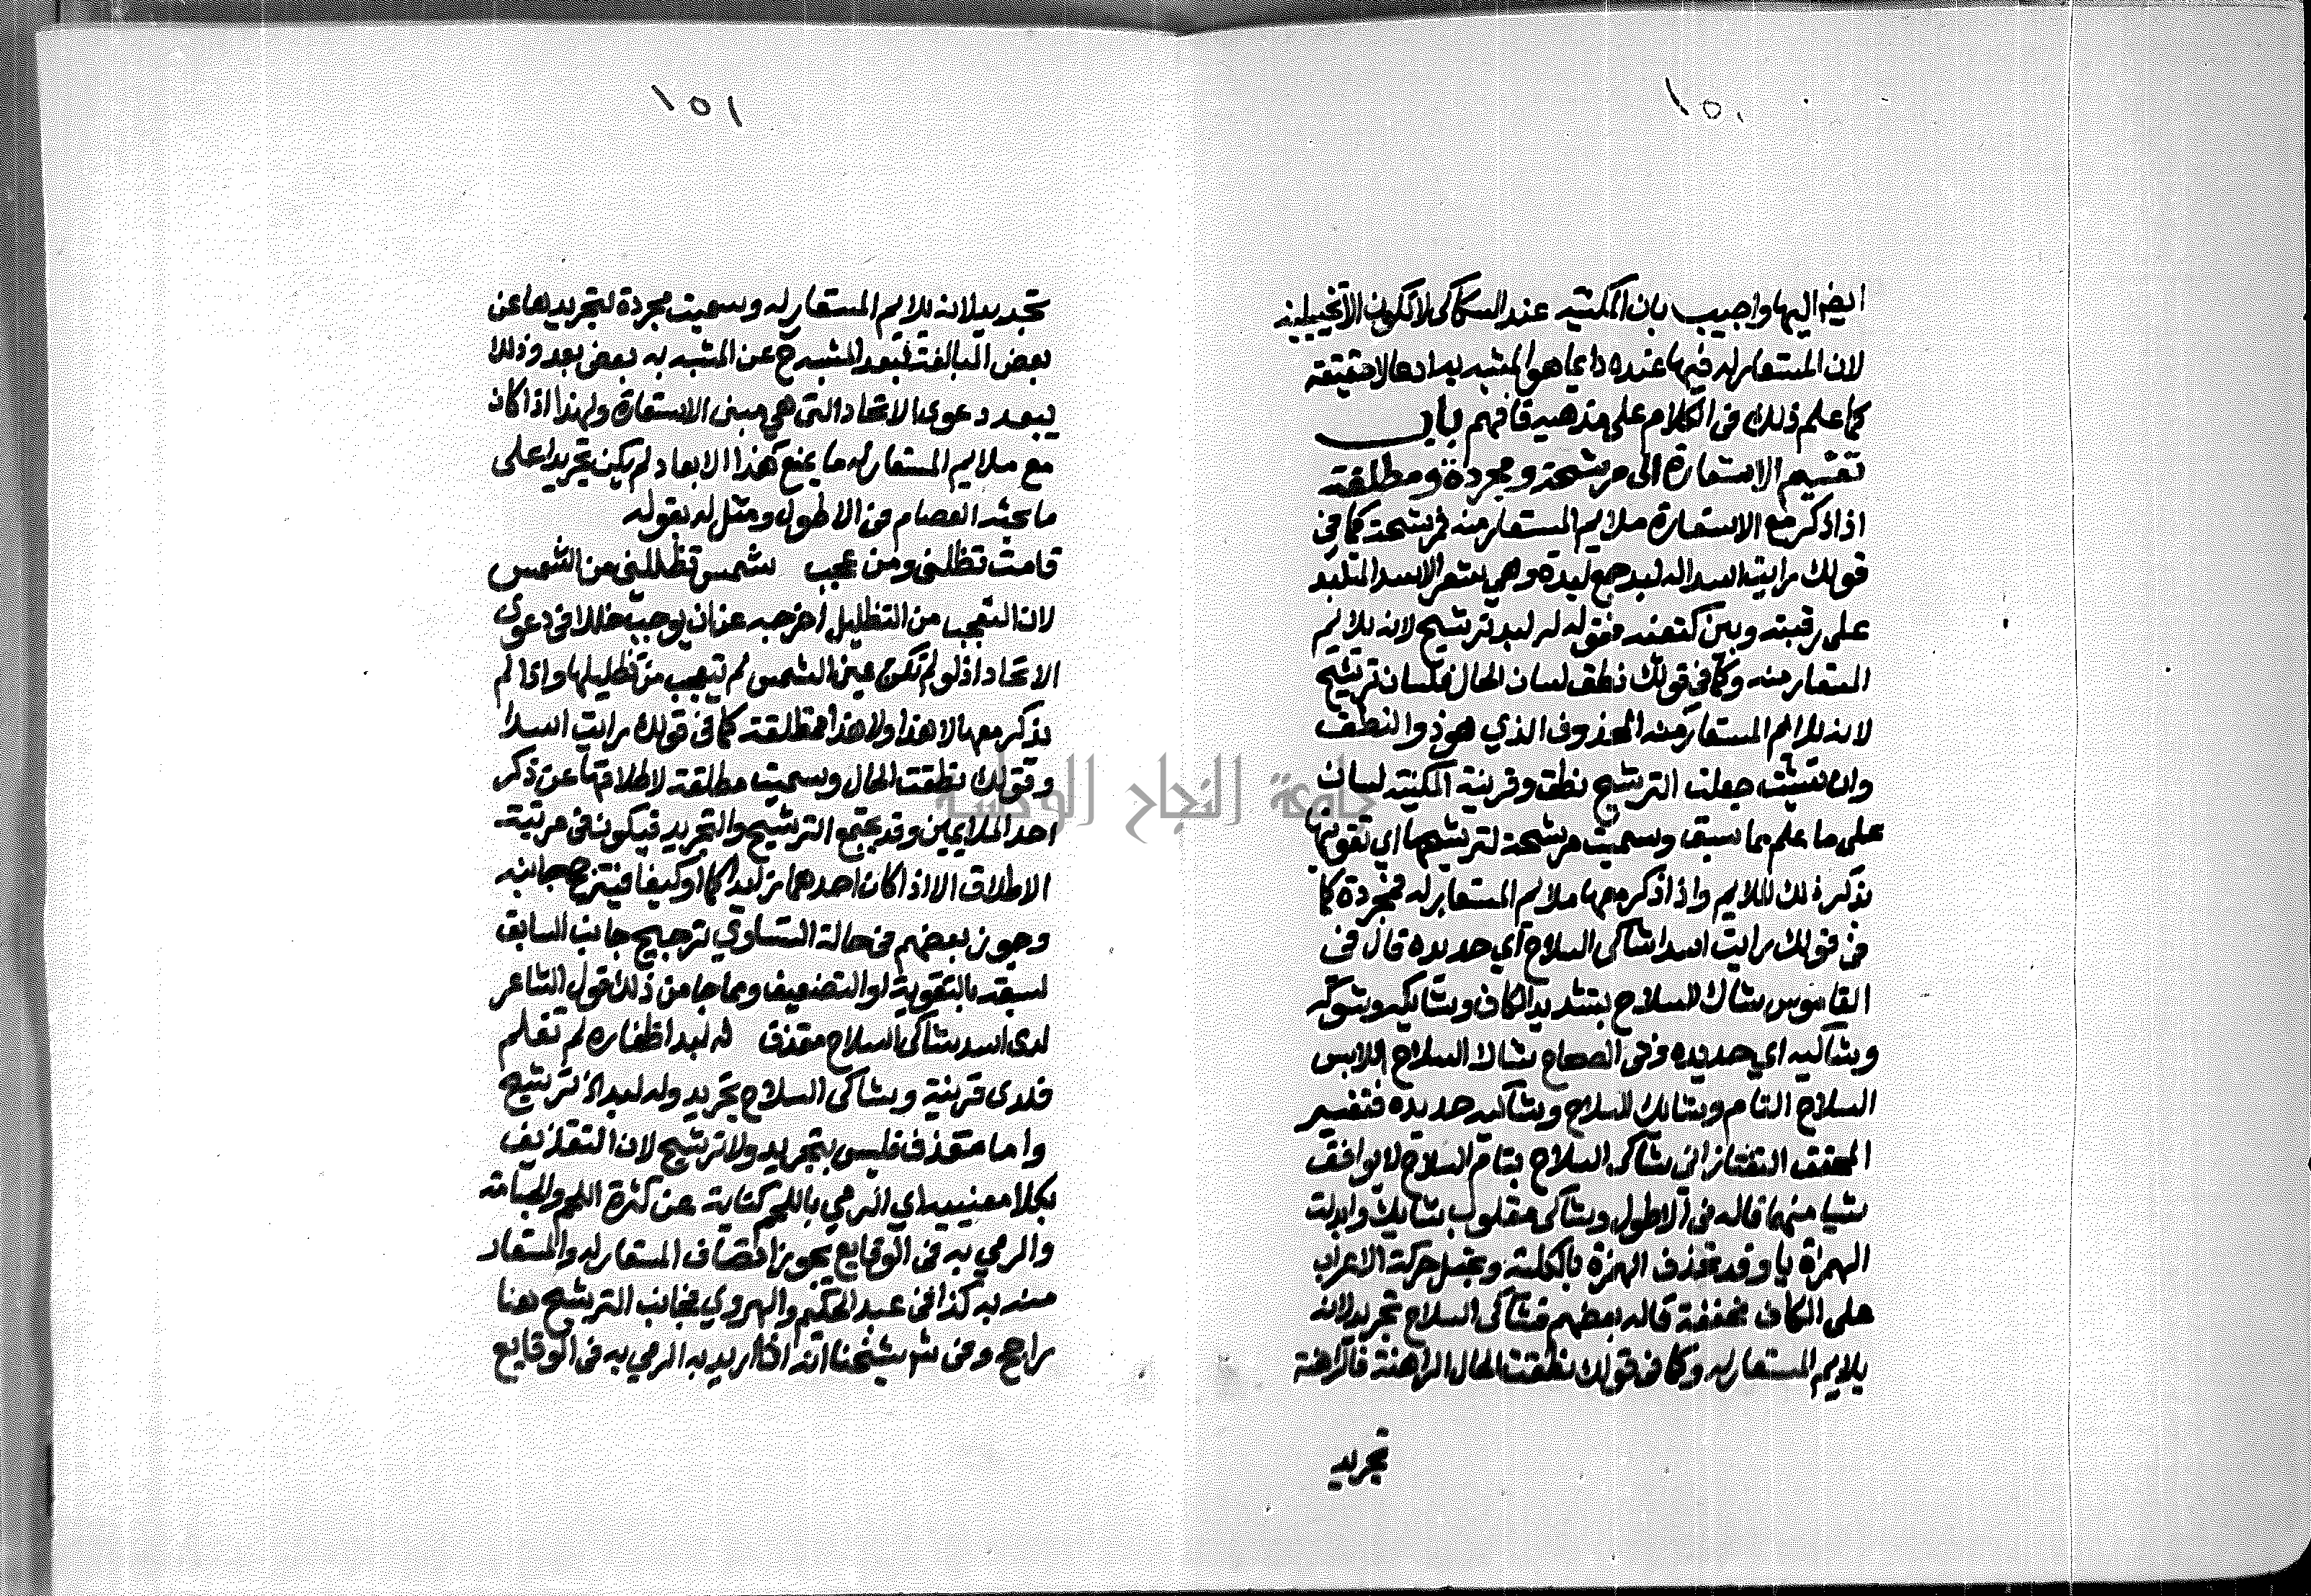 ١٥٠
انضم اليها واجيب بان المكنية عند السكاكى لا تكون الا تخييلية
لان المستعار له فيها عنده دائما هو المشبه به ادعا لا حقيقة
كما علم ذلك في الكلام على مذهبه فافهم باب
تقسيم الاستعارة الى مرشحة ومجردة ومطلقة
اذا ذكر مع الاستعارة ملايم المستعار منه فمرشحة كما في
قولك رايت اسدا له لبد جمع لبدة وهي شعر الاسد المتلبد
على رقبته وبين كتفيه فقوله له لبد ترشيح لانه يلايم
المستعار منه وكما في قولك نطق لسان الحال فلسان ترشيح
لانه يلايم المستعار منه المحذوف الذي هو ذو النطق
وان شئت جعلت الترشيح نطق وقرينة المكنية لسان
على ما علم مما سبق وسميت مرشحة لترشيحها اي تقويتها
بذكر ذلك الملايم واذا ذكر معها ملايم المستعار له فمجردة كما
في قولك رايت اسدا شاكى السلاح اي حديده قال في
القاموس شاك السلاح بتشديد الكاف وشايكه وشوكه
وشاكيه اي حديده وفي الصحاح شاك السلاح اللابس
السلاح التام وشايك السلاح وشاكيه حديده فتفسير
المحقق التفتازاني شاكى السلاح بتام السلاح لا يوافق
شيا منهما قاله في الاطول وشاكى مقلوب شايك وابدلت
الهمزة يا وقد تحذف الهمزة بالكلية وتجعل حركة الاعراب
على الكاف مخففة قاله بعضهم فشاكى السلاح تجريد لانه
يلايم المستعار له وكما في قولك نطقت الحال الراهنة فالراهنة
تجريد
١٥١
تجريد لانه يلايم المستعار له وسميت مجردة لتجريدها عن
بعض المبالغة لبعد المشبه ح عن المشبه به بعض بعد وذلك
يبعد دعوى الاتحاد التى هي مبنى الاستعارة ولهذا اذا كان
مع ملايم المستعار له ما يمنع هذا الابعاد لم يكن تجريدا على
ما بحثه العصام في الاطول ومثل له بقوله
قامت تظللنى ومن عجب شمس تظللني من الشمس
لان التعجب من التظليل اخرجه عن ان يوجب خللا في دعوى
الاتحاد اذ لو لم تكن عين الشمس لم تيعجب من تظليلها واذا لم
يذكر معها لا هذا ولا هذا فمطلقة كما في قولك رايت اسدا
وقولك نطقت الحال وسميت مطلقة لاطلاقها عن ذكر
احد الملايمين وقد يجتمع الترشيح والتجريد فيكون في مرتبة
الاطلاق الا اذا كان احدهما زايدا كما او كيفا فيترجح جانبه
وجوز بعضهم في حالة التساوي ترجيح جانب السابق
لسبقه بالتقوية او التضعيف ومما جا من ذلك قول الشاعر
لدى اسد شاكى السلاح مقذف له لبد اظفاره لم تقلم
فلدى قرينة وشاكى السلاح تجريد وله لبد الخ ترشيح
واما مقذف فليس بتجريد ولا ترشيح لان التقذيف
بكلا معنييه اي الرمي باللحم كناية عن كثرة اللحم والجسامة
والرمي به في الوقايع يجوز اتصاف المستعار له والمستعار
منه به كذا في عبد الحكيم والهروي فجانب الترشيح هنا
راجح وفي شر شيخنا انه اذا اريد به الرمي به في الوقايع